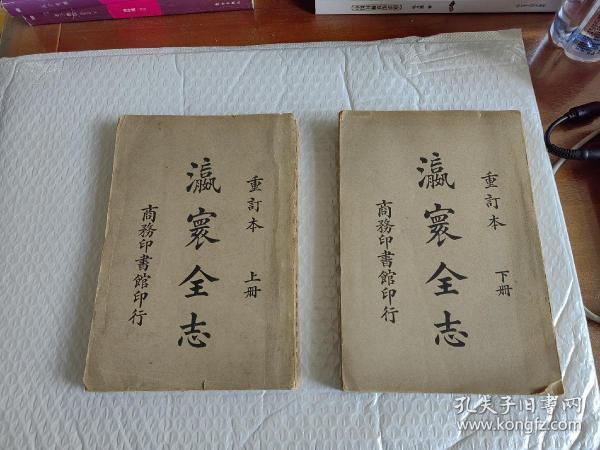 重訂本 上册
瀛寰全志
商務印書館印行
重訂本 下册
瀛寰全志
商務印書館印行
孔夫子旧书网
www.kongfz.com